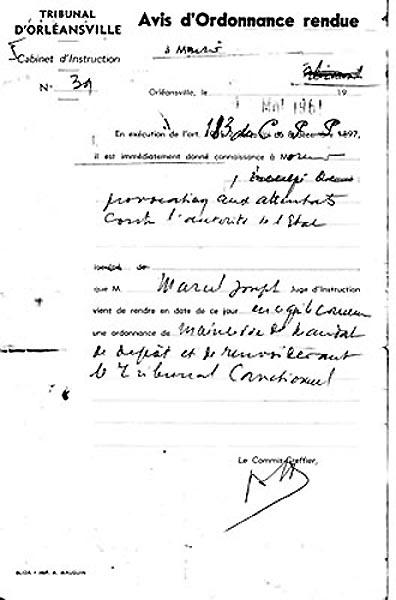 TRIBUNAL
D'ORLÉANSVILLE
Avis d'Ordonnance rendue
Cabinet d'Instruction
N° 39
Orléansville, le 1 Mai 1961 19
En exécution de l'art. 183 du C P P 1897,
il est immédiatement donné connaissance à M
inculpé
provocation aux attentats
contre l'autorité de l'Etat
que M. Marcel Joseph Juge d'Instruction
vient de rendre en date de ce jour en ce qui le concerne
une ordonnance de Mainlevée de Mandat
de dépôt et de renvoi devant
le Tribunal Correctionnel
Le Commis-Greffier,
BLIDA - IMP. A. MAUGUIN